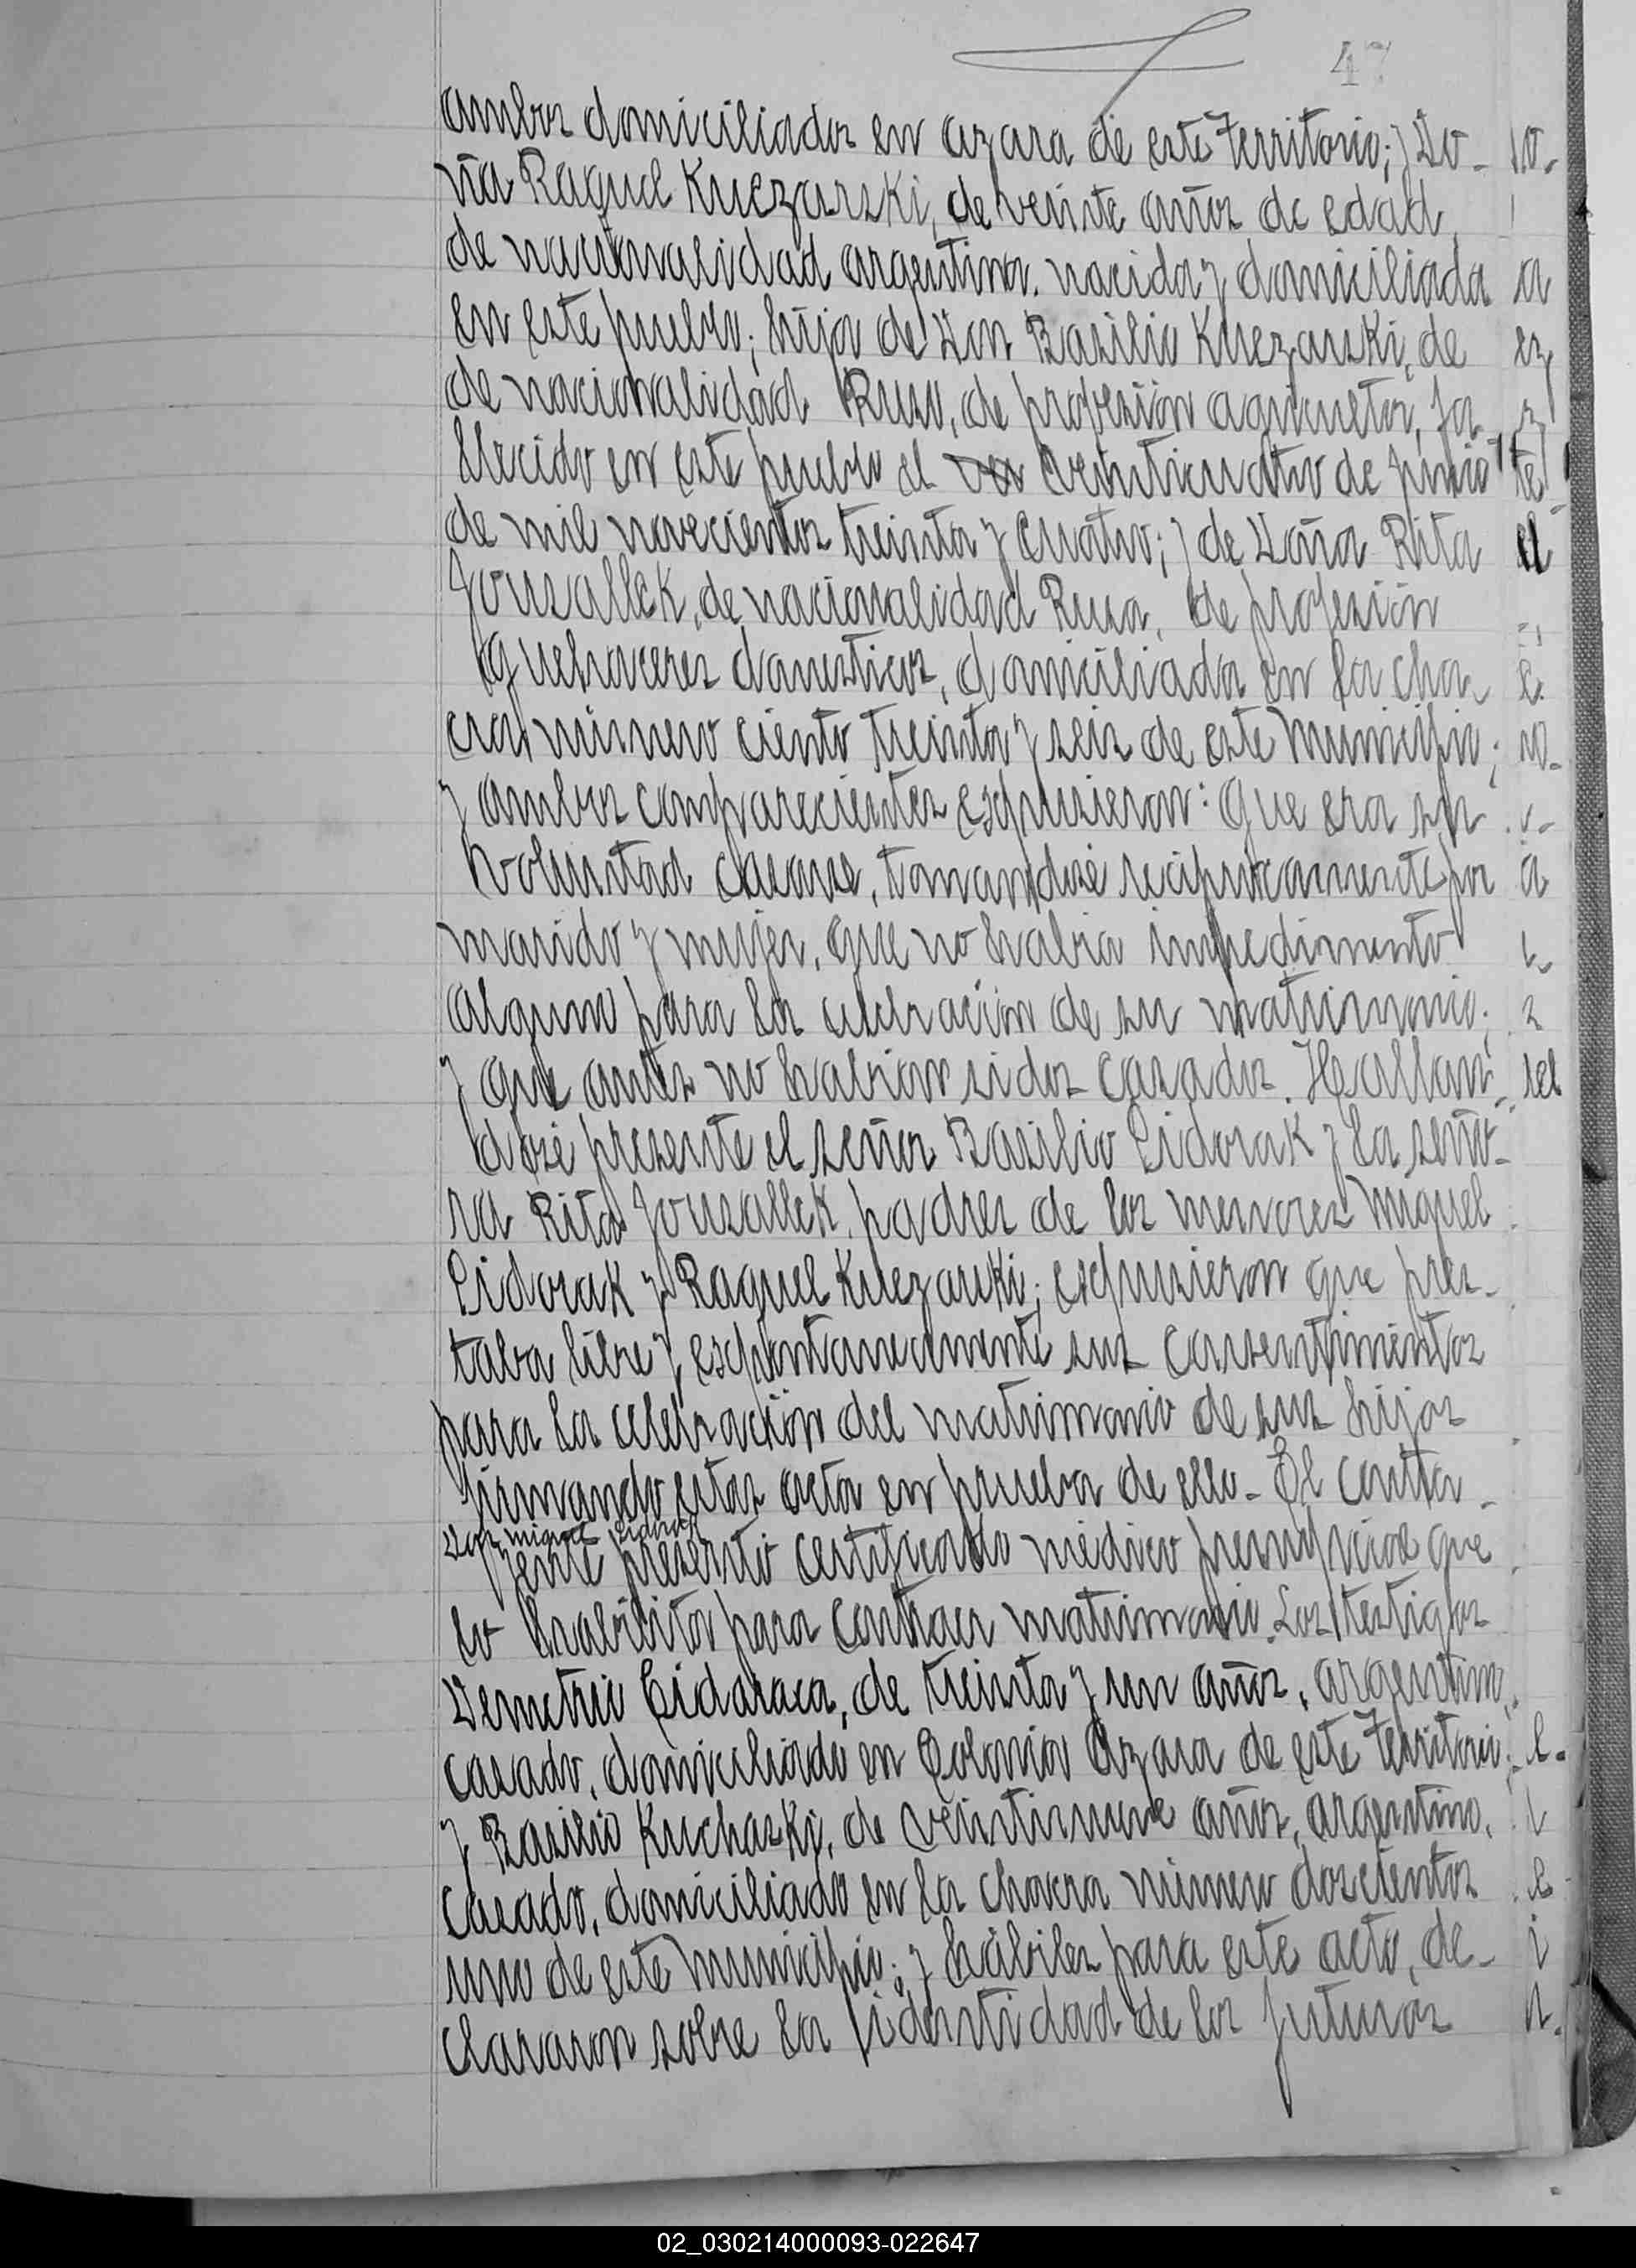 47
ambos domiciliados en azara de este Territorio; y Do-
ña Raquel Kuezarski, de veinte años de edad,
de nacionalidad argentina, nacida y domiciliada
en este pueblo; hija de Don Basilio Kuezarski, de
de nacionalidad Ruso, de profesión agricultor, fa-
llecido en este pueblo el veinticuatro de junio
de mil novecientos treinta y cuatro; y de Doña Rita
Jousallek, de nacionalidad Rusa, de profesión
quehaceres domesticos, domiciliada en la cha-
cra número ciento treinta y seis de este Municipio;
y ambos comparecientes expusieron: que era su
voluntad casarse, tomandose reciprocamente por
marido y mujer, que no habia impedimento
alguno para la celebración de su matrimonio;
y que antes no habian sidos casados. Hallan-
dose presente el señor Basilio Cidorak y la seño-
ra Rita Jousallek, padres de los menores Miguel
Cidorak y Raquel Kuezarski; expusieron que pres-
taba libre y espontaneamente sus consentimientos
para la celebración del matrimonio de sus hijos
firmando estas acta en prueba de ello. El contra-
Don miguel Cidorak
yente presentó certificado médico prenupcial que
lo habilita para contraer matrimonio. Los testigos
Demetrio Cidoraca, de treinta y un años, argentino,
casado, domiciliado en Colonia Azara de este Territorio;
y Basilio Kucharki, de veintinueve años, argentino,
casado, domiciliado en la chacra número doscientos
uno de este Municipio; y hábiles para este acto, de-
clararon sobre la identidad de los futuros
02_030214000093-022647